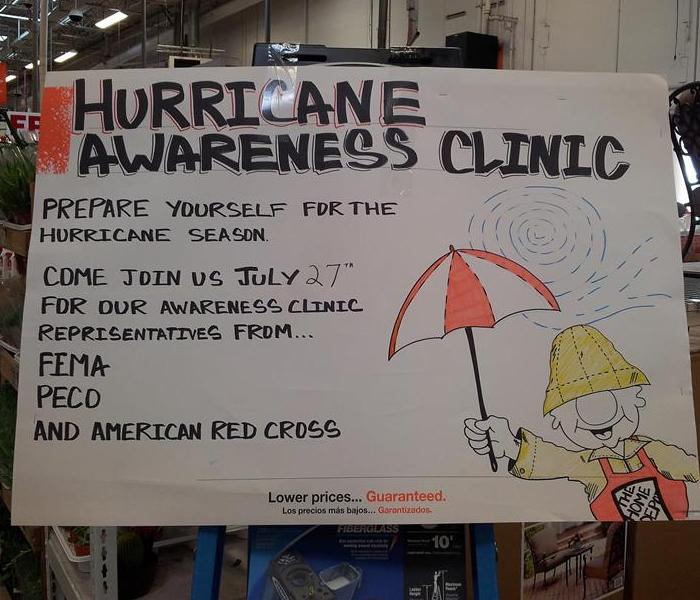 HURRICANE
AWARENESS CLINIC
PREPARE YOURSELF FOR THE
HURRICANE SEASON.
COME JOIN US JULY 27TH
FOR OUR AWARENESS CLINIC
REPRISENTATIVES FROM...
FEMA
PECO
AND AMERICAN RED CROSS
THE
HOME
DEPO
Lower prices... Guaranteed.
Los precios más bajos... Garantizados.
FIBERGLASS
10'